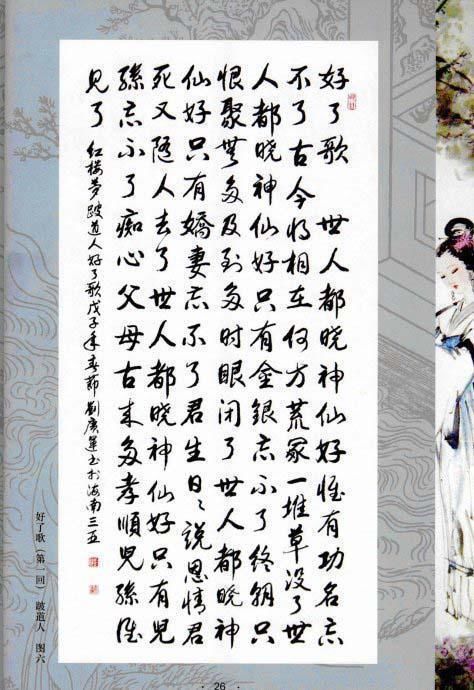 好了歌 世人都晓神仙好惟有功名忘
不了古今将相在何方荒冢一堆草没了世
人都晓神仙好只有金银忘不了终朝只
恨聚無多及到多时眼闭了世人都晓神
仙好只有嬌妻忘不了君生日々说恩情君
死又随人去了世人都晓神仙好只有児
孫忘不了痴心父母古来多孝順児孫谁
见了 红楼梦跛道人好了歌戊子年春节劉廣運书於海南三亚
好了歌（第一回） 跛道人 图六
· 26 ·